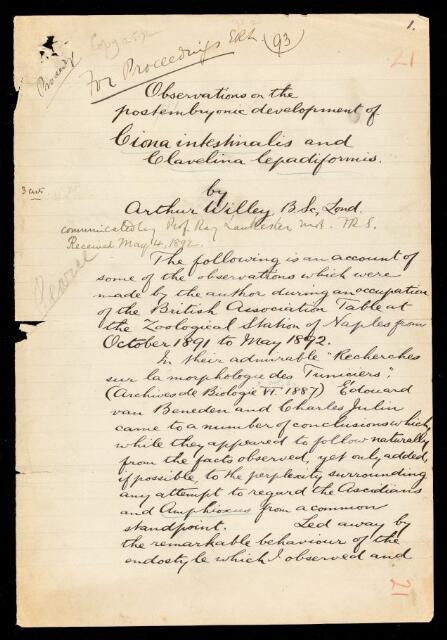 1.
21
Copy
For Proceedings
(93)
Observations on the
postembryonic development of
Ciona intestinalis and
Clavelina lepadiformis.
by
Arthur Willey, B.Sc, Lond.
communicated by Prof. Ray Lankester M.A. F.R.S.
Received May 14, 1892.
The following is an account of
some of the observations which were
made by the author during an occupation
of the British Association Table at
the Zoological Station of Naples from
October 1891 to May 1892.
In their admirable "Recherches
sur la morphologie des Tuniciers",
(Archives de Biologie VI. 1887) Édouard
van Beneden and Charles Julin
came to a number of conclusions which,
while they appeared to follow naturally
from the facts observed, yet only added,
if possible, to the perplexity surrounding
any attempt to regard the Ascidians
and Amphioxus from a common
standpoint. Led away by
the remarkable behaviour of the
endostyle which I observed and
21